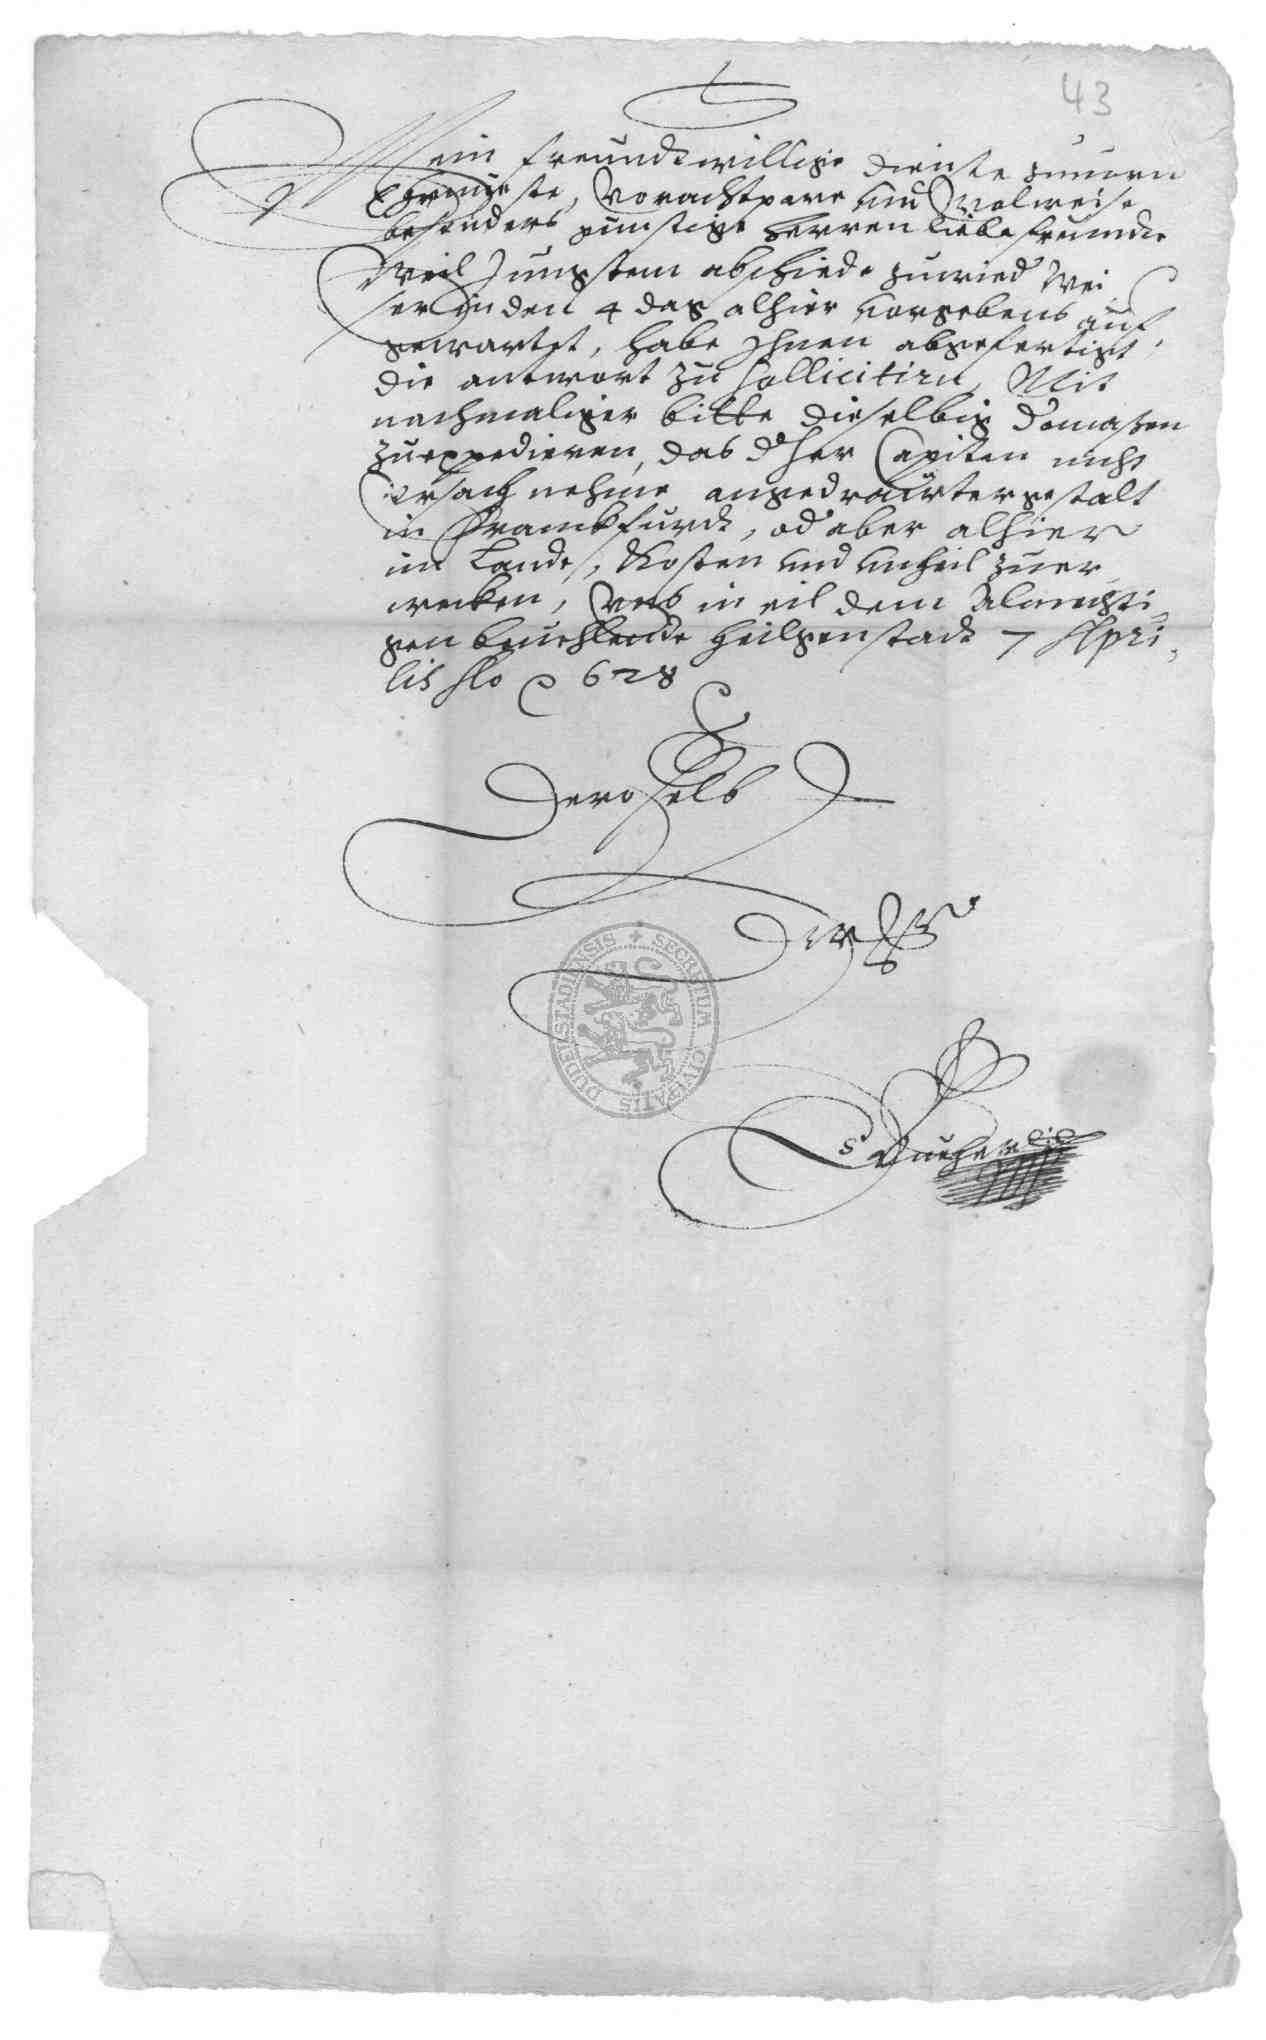 43
Mein freundtwillige dienste zuuorn
Ehrnueste, Vorachtpare und Wolweise
besonders gunstige Herren liebe freunde
Weil Jungstem abschiede zuwied Wei
ser in den 4 dag alhier vorgebens auf
gewartet, habe Ihnen abgefertigt,
die antwort zu sollicitirn, Mit
nachmaliger bitte dieselbig domaßen
zuexpedieren, das d her Capiten nicht
Ursach nehme angedraüter gestalt
in Franckfurdt, od aber alhier
im Lande, Kosten und unheil zuer
wecken, Uns in eil dem Almechti
gen beuehlende Heiligenstadt 7 Apri,
lis Ao 628
Deroselb
Dw
SECRETUM CIVITATIS DUDERSTADIENSIS